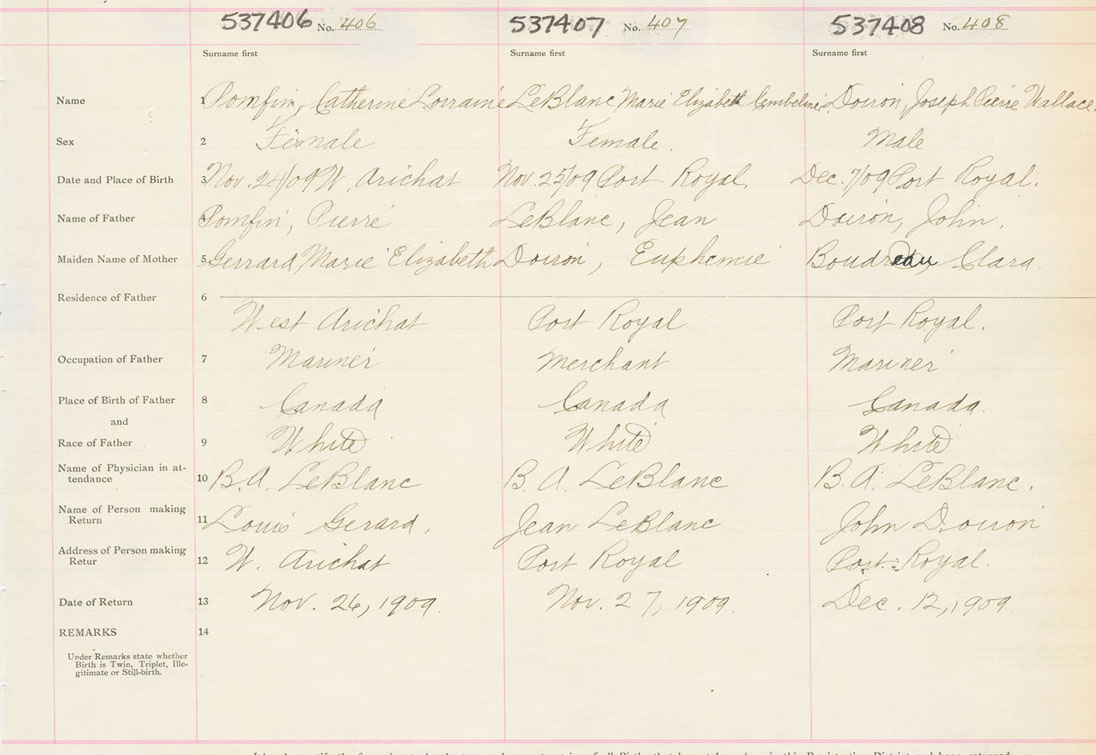 537406 No. 406 537407 No. 407 537408 No. 408
Surname first Surname first Surname first
Name 1 Pomfin, Catherine Lorraine LeBlanc Marie Elizabeth Doiron, Joseph Pierre Wallace.
Sex 2 Female Female. Male
Date and Place of Birth 3 Nov. 24/09 W. Arichat Nov 25/09 Port Royal. Dec. 7/09 Port Royal.
Name of Father 4 Pomfin, Pierre LeBlanc, Jean Doiron, John.
Maiden Name of Mother 5 Gerrard, Marie Elizabeth Doiron, Euphemie Boudreau Clara.
Residence of Father 6
West Arichat Port Royal Port Royal.
Occupation of Father 7 Mariner Merchant Mariner
Place of Birth of Father 8 Canada Canada Canada.
and
Race of Father 9 White White White
Name of Physician in at-
tendance 10 B.A. LeBlanc B. A. LeBlanc B. A. LeBlanc.
Name of Person making
Return 11 Louis Gerard, Jean LeBlanc John Doiron
Address of Person making
Retur 12 W. Arichat Port Royal Port Royal.
Date of Return 13 Nov. 26, 1909. Nov. 27, 1909. Dec. 12, 1909
REMARKS 14
Under Remarks state whether
Birth is Twin, Triplet, Ille-
gitimate or Still-birth.